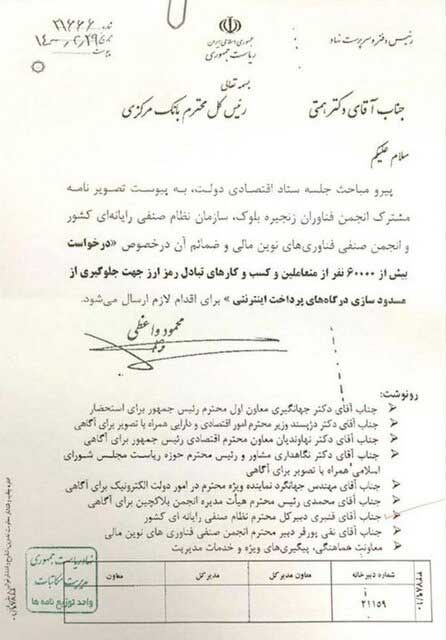 جمهوری اسلامی ایران
ریاست جمهوری
رئیس دفتر و سرپرست نهاد
شماره ۲۱۶۶۶
تاریخ ۱۴۰۰/۲/۲۹
پیوست
بسمه تعالی
جناب آقای دکتر همتی
رئیس کل محترم بانک مرکزی
سلام علیکم
پیرو مباحث جلسه ستاد اقتصادی دولت، به پیوست تصویر نامه
مشترک انجمن فناوران زنجیره بلوک، سازمان نظام صنفی رایانه‌ای کشور
و انجمن صنفی فناوری‌های نوین مالی و ضمائم آن درخصوص «درخواست
بیش از ۶۰۰۰۰ نفر از متعاملین و کسب و کارهای تبادل رمز ارز جهت جلوگیری از
مسدود سازی درگاه‌های پرداخت اینترنتی» برای اقدام لازم ارسال می‌شود.
محمود واعظی
رونوشت:
جناب آقای دکتر جهانگیری معاون اول محترم رئیس جمهور برای استحضار
جناب آقای دکتر دژپسند وزیر محترم امور اقتصادی و دارایی همراه با تصویر برای آگاهی
جناب آقای دکتر نهاوندیان معاون محترم اقتصادی رئیس جمهور برای آگاهی
جناب آقای دکتر نگاهداری مشاور و رئیس محترم حوزه ریاست مجلس شورای
اسلامی همراه با تصویر برای آگاهی
جناب آقای مهندس جهانگرد نماینده ویژه محترم در امور دولت الکترونیک برای آگاهی
جناب آقای محمدی رئیس محترم هیأت مدیره انجمن بلاکچین برای آگاهی
جناب آقای قنبری دبیرکل محترم نظام صنفی رایانه ای کشور
جناب آقای نقی پورفر دبیر محترم انجمن صنفی فناوری های نوین مالی
معاونت هماهنگی، پیگیری‌های ویژه و خدمات مدیریت
شماره دبیرخانه
معاون مدیرکل
مدیرکل
معاون
۲۱۱۵۹
نهاد ریاست جمهوری
مدیریت مکاتبات
واحد توزیع نامه ها